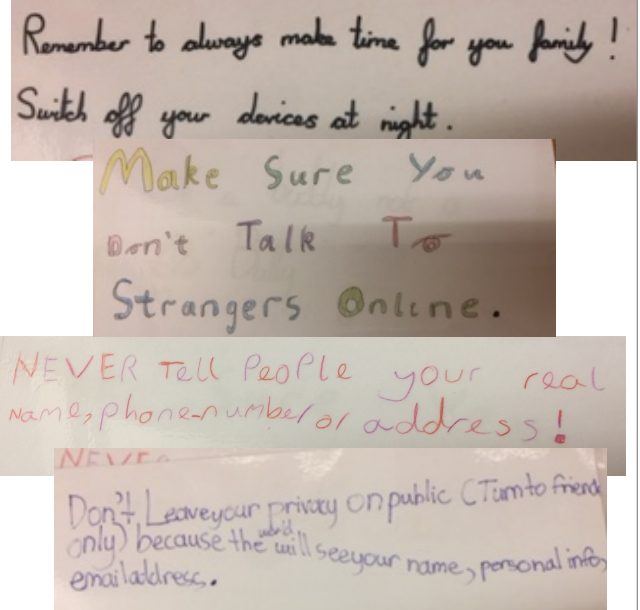 Remember to always make time for you family!
Switch off your devices at night.
Make Sure You
Don't Talk To
Strangers Online.
NEVER Tell PeoPle your real
Name, phone-number or address!
NEVER
Don't Leave your privacy on public (Turn to friend
only) because the world will see your name, personal info,
email address.